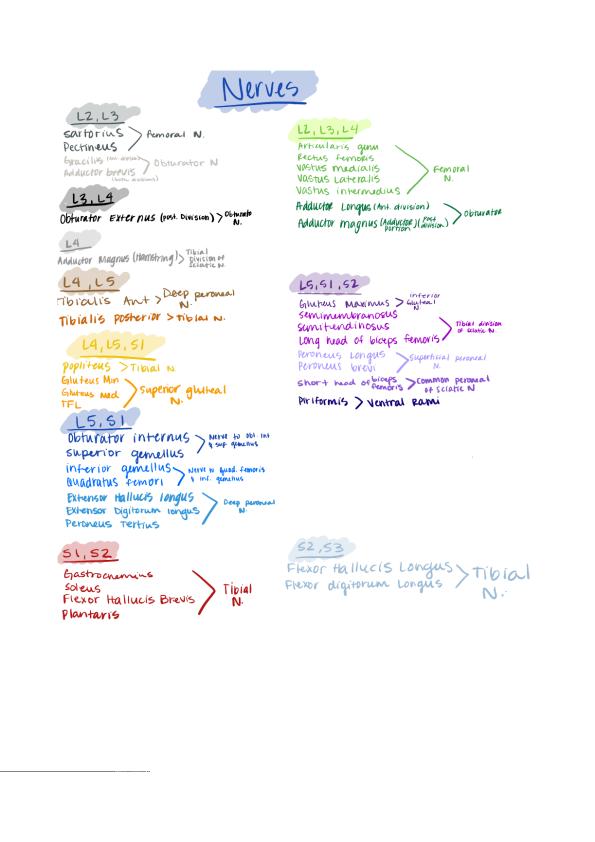 Nerves
L2, L3
Sartorius
Pectineus
Femoral N.
Gracilis (Ant. division)
Adductor brevis
(both divisions)
Obturator N
L3, L4
Obturator Externus (post. Division) > Obturator
N.
L4
Adductor Magnus (Hamstring) > Tibial
Division of
Sciatic N.
L4, L5
Tibialis Ant > Deep peroneal
N.
Tibialis posterior > Tibial N.
L4, L5, S1
popliteus > Tibial N.
Gluteus Min
Gluteus Med
TFL
Superior gluteal
N.
L5, S1
Obturator internus
Superior gemellus
Nerve to obt. int
& sup gemellus
inferior gemellus
Quadratus femori
Nerve to Quad. femoris
& inf. gemellus
Extensor Hallucis longus
Extensor Digitorum longus
Peroneus Tertius
Deep peroneal
N.
S1, S2
Gastrocnemius
Soleus
Flexor Hallucis Brevis
Plantaris
Tibial
N.
L2, L3, L4
Articularis genu
Rectus femoris
Vastus medialis
Vastus Lateralis
Vastus intermedius
Femoral
N.
Adductor Longus (Ant. division)
Adductor magnus (Adductor portion) (Post division)
Obturator
L5, S1, S2
Gluteus Maximus > inferior
Gluteal
N
semimembranosus
semitendinosus
Long head of biceps femoris
Tibial division
of sciatic N.
Peroneus Longus
Peroneus brevi
Superficial peroneal
N.
short head of biceps femoris > Common peroneal
of Sciatic N.
Piriformis > Ventral Rami
S2, S3
Flexor Hallucis Longus
Flexor digitorum Longus
Tibial
N.